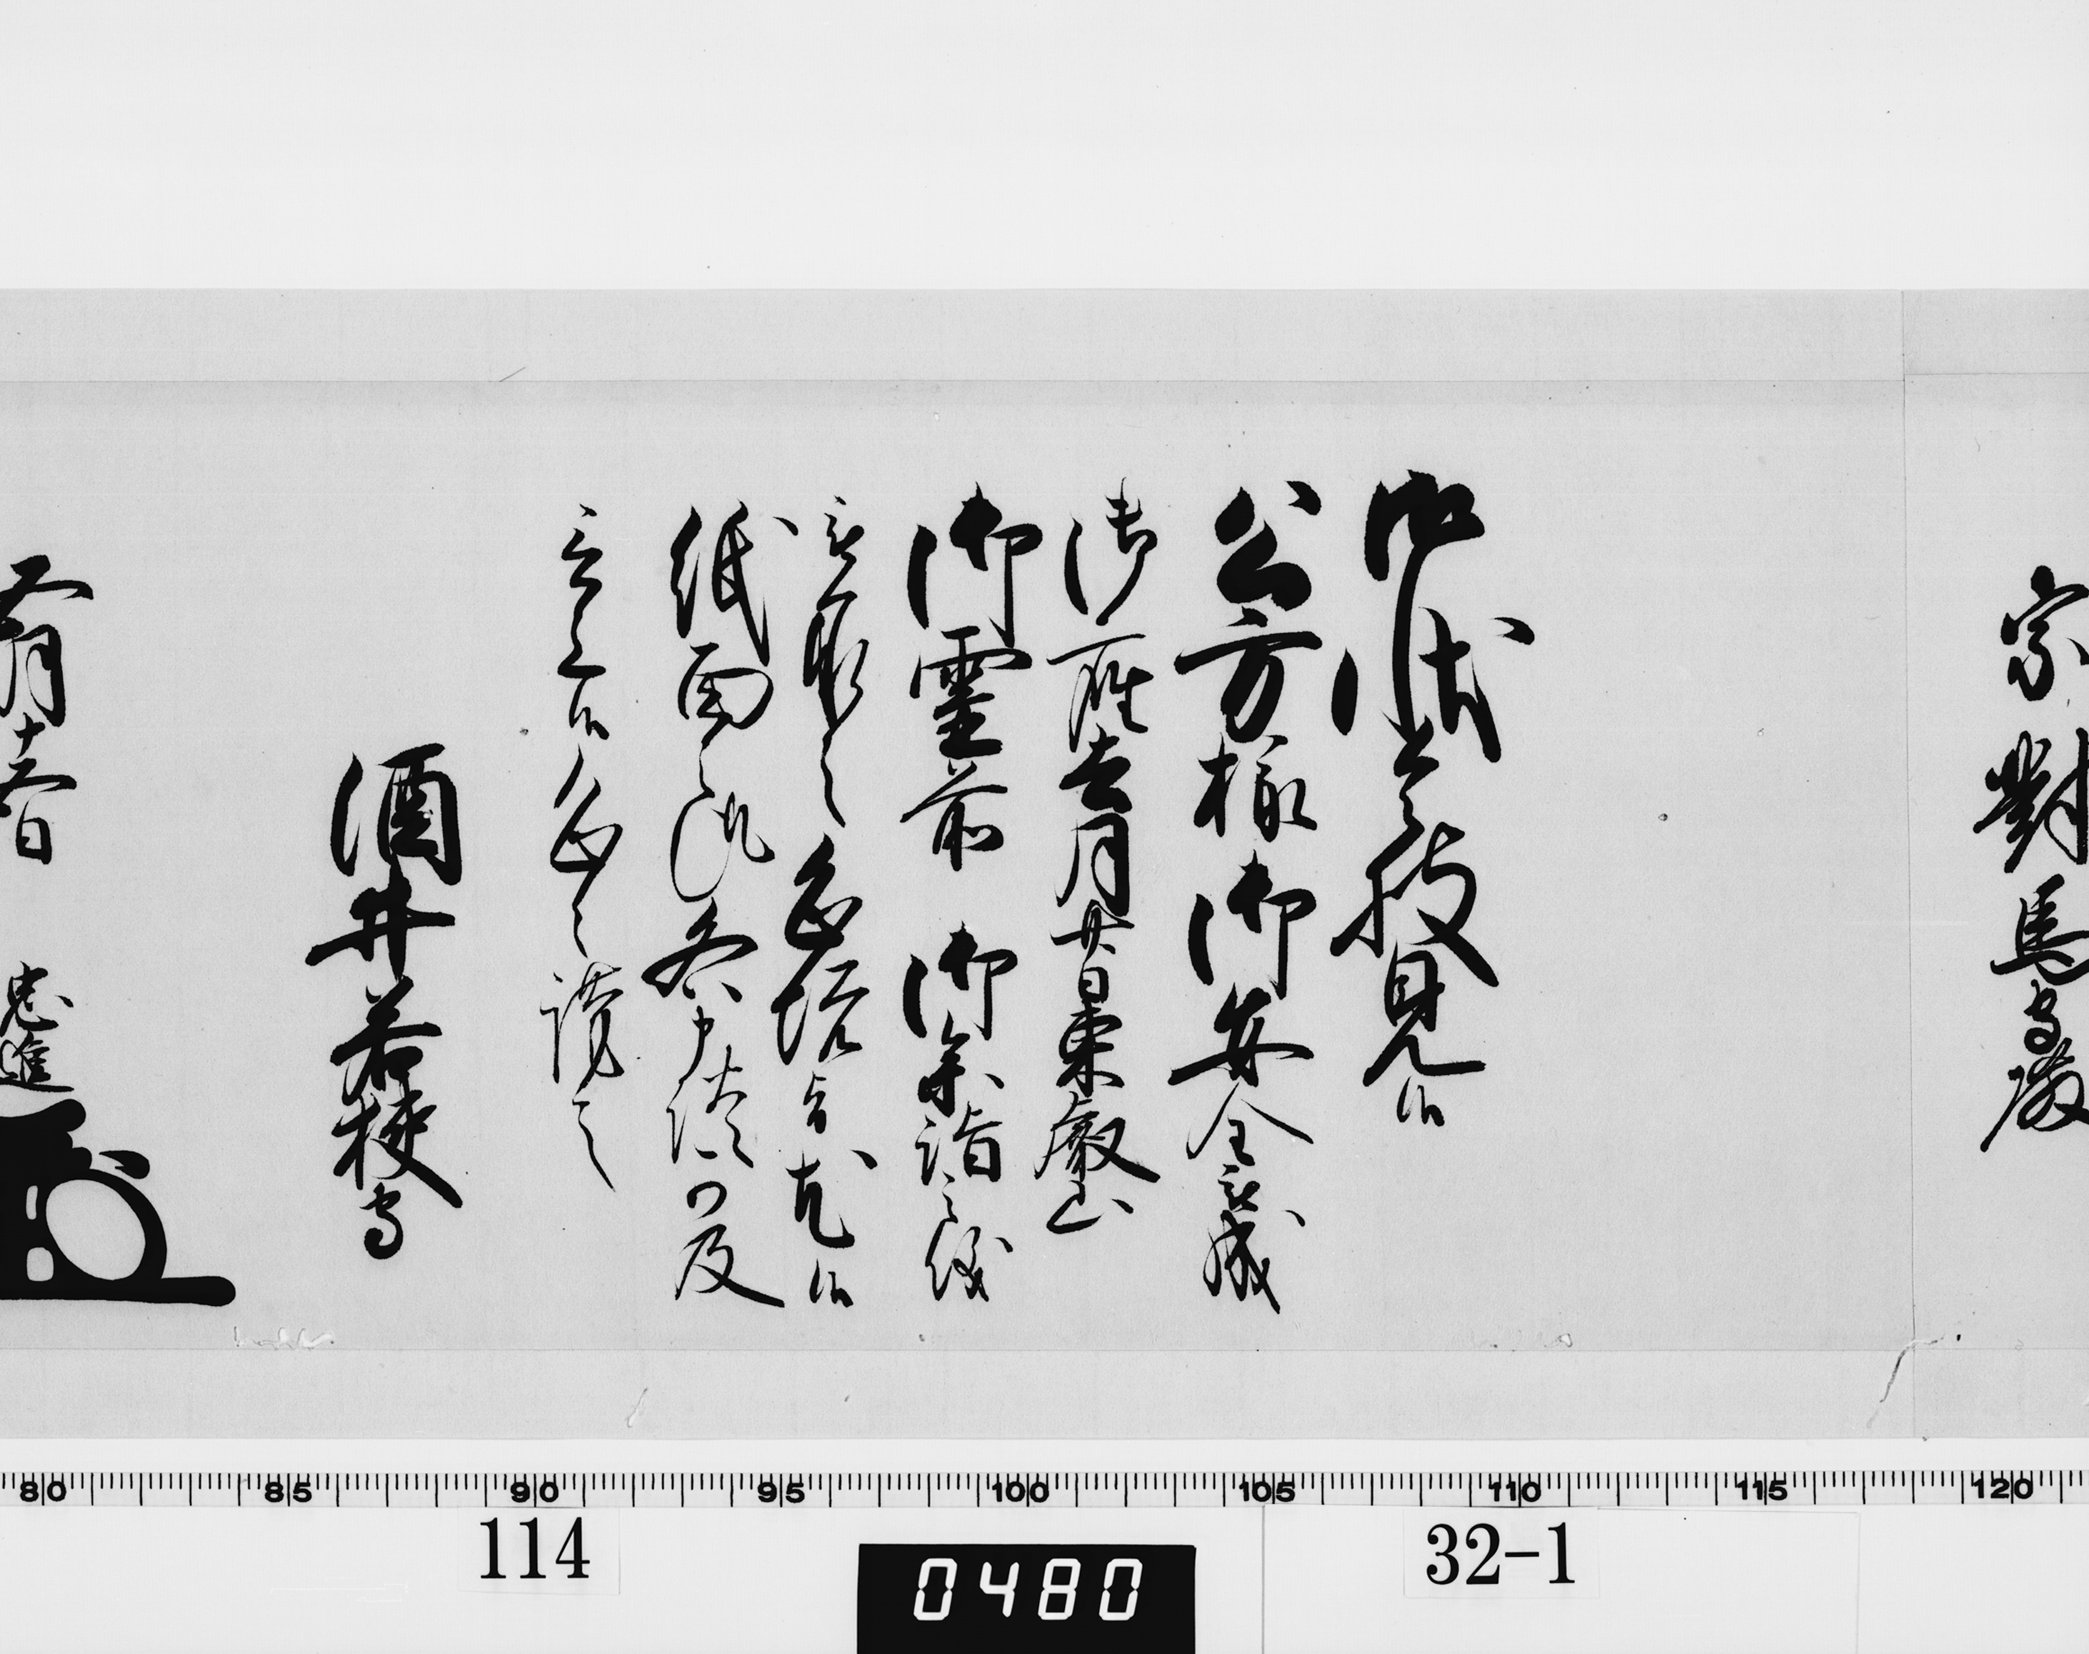 宗對馬守殿
御状令披見候
公方様御安全被成
御座去月廿日東叡山
御霊前 御参詣之儀
被承之恐悦旨尤候
紙面之趣各申談可及
言上候恐々謹言
酒井若狭守
五月十六日 忠進
114
0480
32-1
80 85 90 95 100 105 110 115 120